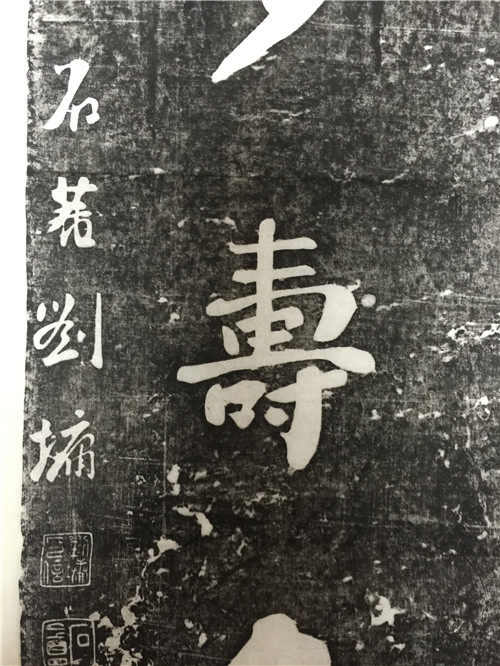 壽
石菴劉墉